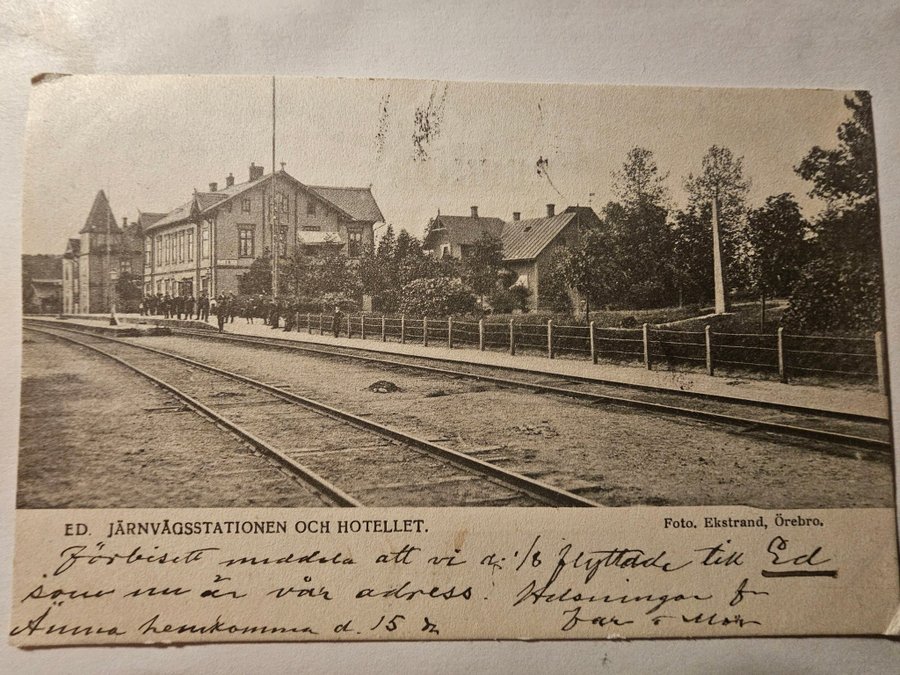 ED. JÄRNVÄGSSTATIONEN OCH HOTELLET.
Foto. Ekstrand, Örebro.
meddela att vi d. 1/8 flyttade till Ed
som nu är vår adress. Helsningar fr
Far o Mor
hemkomma d. 15 ds